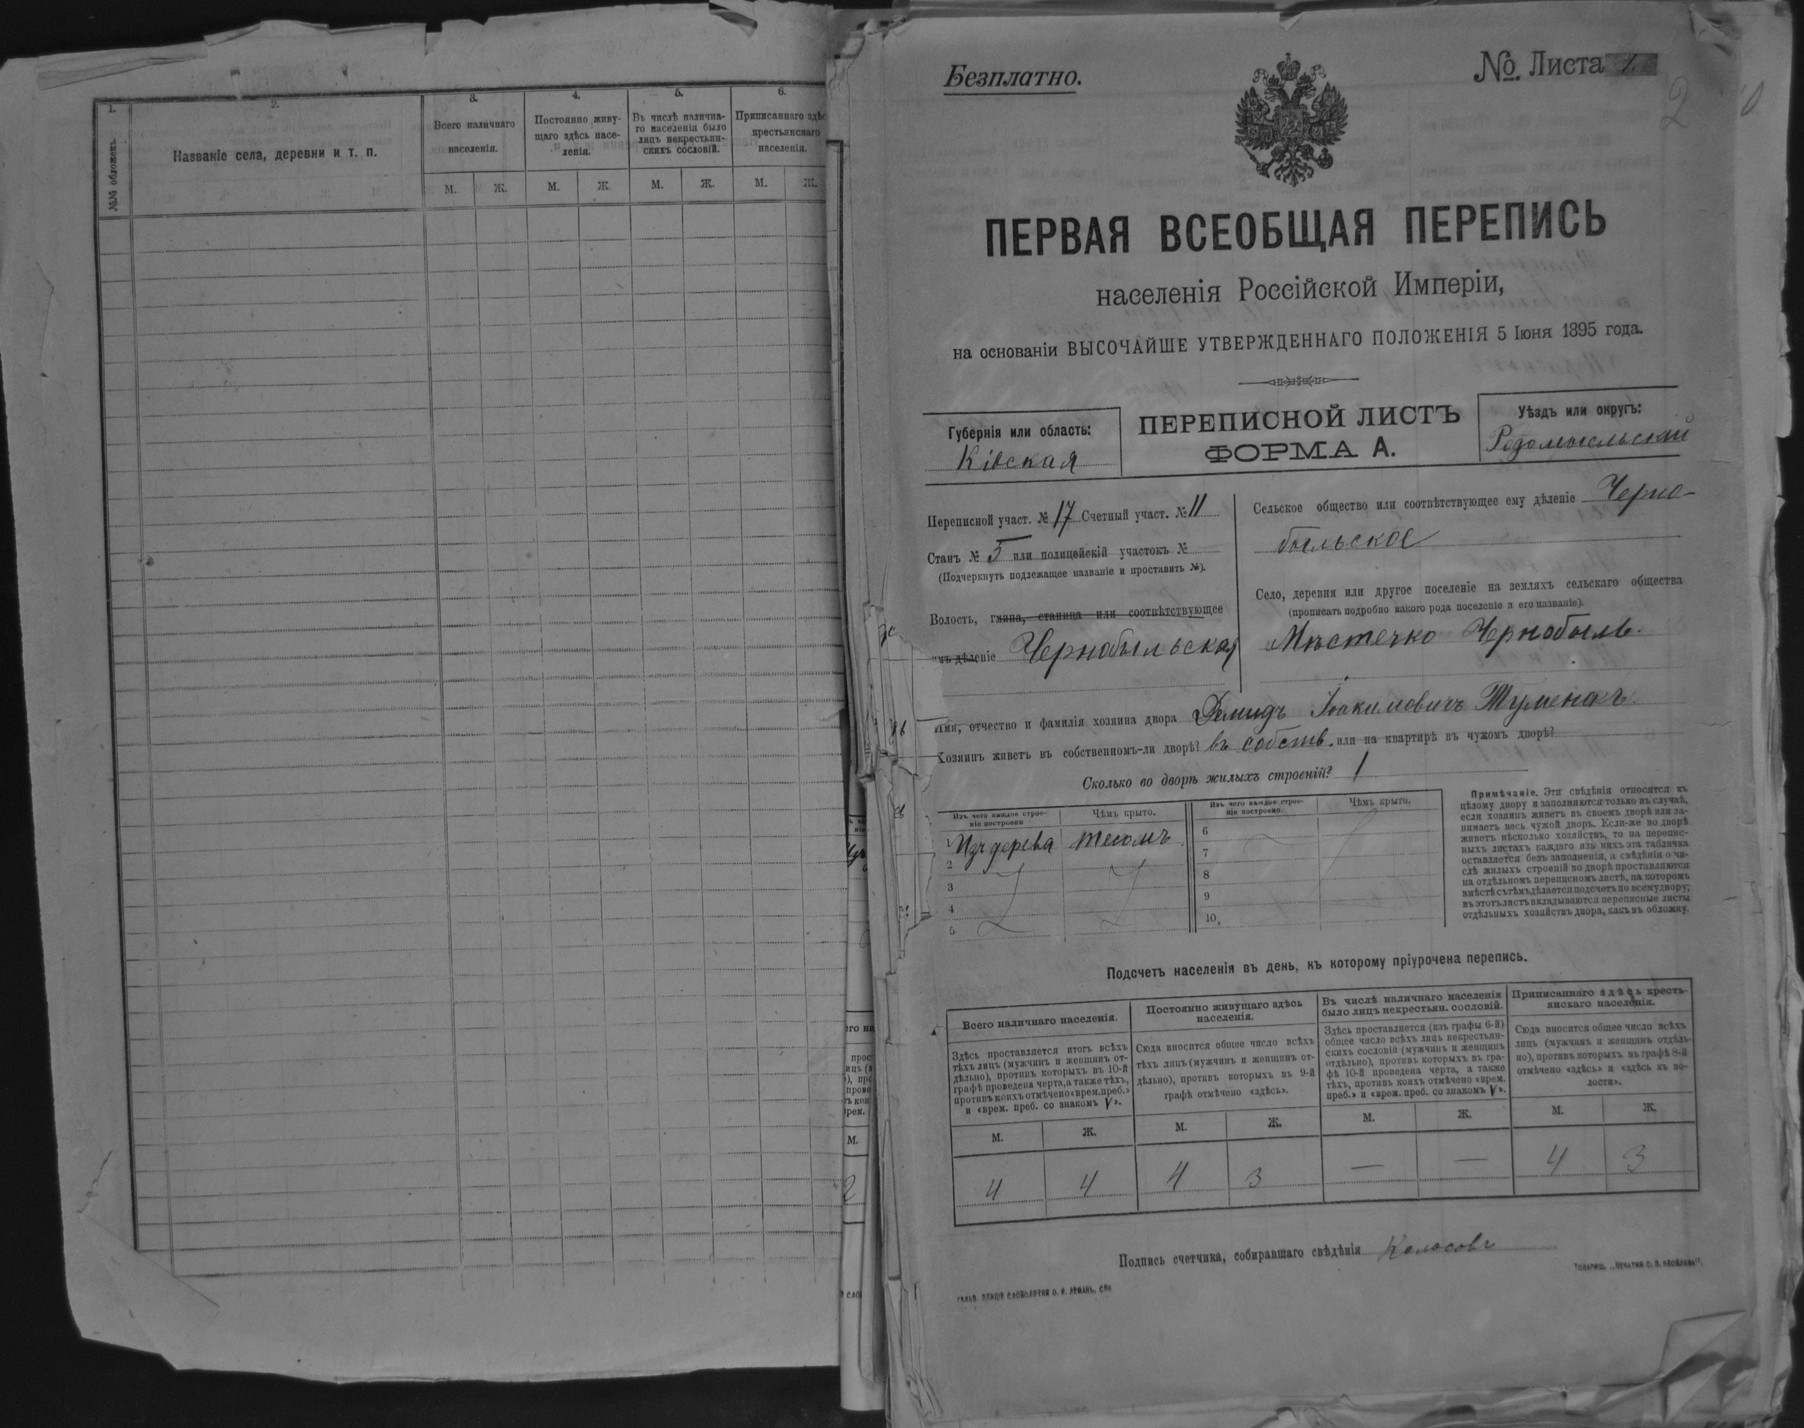 1.
2.
3.
4.
5.
6.
№№ обложекъ.
Названіе села, деревни и т. п.
Всего наличнаго
населенія.
Постоянно живу-
щаго здѣсь насе-
ленія.
Въ числѣ налична-
го населенія было
лицъ некрестьян-
скихъ сословій.
Приписаннаго здѣс
крестьянскаго
населенія.
М. Ж. М. Ж. М. Ж. М. Ж.
Безплатно.
№. Листа 1.
2
ПЕРВАЯ ВСЕОБЩАЯ ПЕРЕПИСЬ
населенія Россійской Имперіи,
на основаніи ВЫСОЧАЙШЕ УТВЕРЖДЕННАГО ПОЛОЖЕНІЯ 5 Іюня 1895 года.
Губернія или область:
Кіевская
ПЕРЕПИСНОЙ ЛИСТЪ
ФОРМА А.
Уѣздъ или округъ:
Радомысльскій
Переписной участ. № 17 Счетный участ. № 11
Станъ № 5 или полицейскій участокъ №
(Подчеркнуть подлежащее названіе и проставить №).
Волость, гмина, станица или соотвѣтствующее
имъ дѣленіе Чернобыльская
Сельское общество или соотвѣтствующее ему дѣленіе Черно-
быльское
Село, деревня или другое поселеніе на земляхъ сельскаго общества
(прописать подробно какого рода поселеніе и его названіе).
Мѣстечко Чернобыль.
Имя, отчество и фамилія хозяина двора Демидъ Іоакимовичъ
Хозяинъ живетъ въ собственномъ-ли дворѣ? въ собств. или на квартирѣ въ чужомъ дворѣ?
Сколько во дворѣ жилыхъ строеній? 1
Изъ чего каждое строе-
ніе построено
Чѣмъ крыто.
Изъ чего каждое строе-
ніе построено.
Чѣмъ крыто.
1 Изъ дерева Тесомъ
2
3
4
5
6
7
8
9
10.
Примѣчаніе. Эти свѣдѣнія относятся къ
цѣлому двору и заполняются только въ случаѣ,
если хозяинъ живетъ въ своемъ дворѣ или за-
нимаетъ весь чужой дворъ. Если-же во дворѣ
живетъ нѣсколько хозяйствъ, то на перепис-
ныхъ листахъ каждаго изъ нихъ эта табличка
оставляется безъ заполненія, а свѣдѣнія о чи-
слѣ жилыхъ строеній во дворѣ проставляются
на отдѣльномъ переписномъ листѣ, на которомъ
вмѣстѣ съ тѣмъ дѣлается подсчетъ по всему двору;
въ этотъ листъ вкладываются переписные листы
отдѣльныхъ хозяйствъ двора, какъ въ обложку.
Подсчетъ населенія въ день, къ которому пріурочена перепись.
Всего наличнаго населенія.
Здѣсь проставляется итогъ всѣхъ
тѣхъ лицъ (мужчинъ и женщинъ от-
дѣльно), противъ которыхъ въ 10-й
графѣ проведена черта, а также тѣхъ,
противъ коихъ отмѣчено «врем. преб.»
и «врем. преб. со знакомъ V».
Постоянно живущаго здѣсь
населенія.
Сюда вносится общее число всѣхъ
тѣхъ лицъ (мужчинъ и женщинъ от-
дѣльно), противъ которыхъ въ 9-й
графѣ отмѣчено «здѣсь».
Въ числѣ наличнаго населенія
было лицъ некрестьян. сословій.
Здѣсь проставляется (изъ графы 6-й)
общее число всѣхъ лицъ некрестьян-
скихъ сословій (мужчинъ и женщинъ
отдѣльно), противъ которыхъ въ гра-
фѣ 10-й проведена черта, а также
тѣхъ, противъ коихъ отмѣчено «врем.
преб.» и «врем. преб. со знакомъ V».
Приписаннаго здѣсь кресть-
янскаго населенія.
Сюда вносится общее число всѣхъ
лицъ (мужчинъ и женщинъ отдѣль-
но), противъ которыхъ въ графѣ 8-й
отмѣчено «здѣсь» и «здѣсь къ во-
лости».
М. Ж. М. Ж. М. Ж. М. Ж.
4 4 4 3 — — 4 3
Подпись счетчика, собиравшаго свѣдѣнія Колосовъ